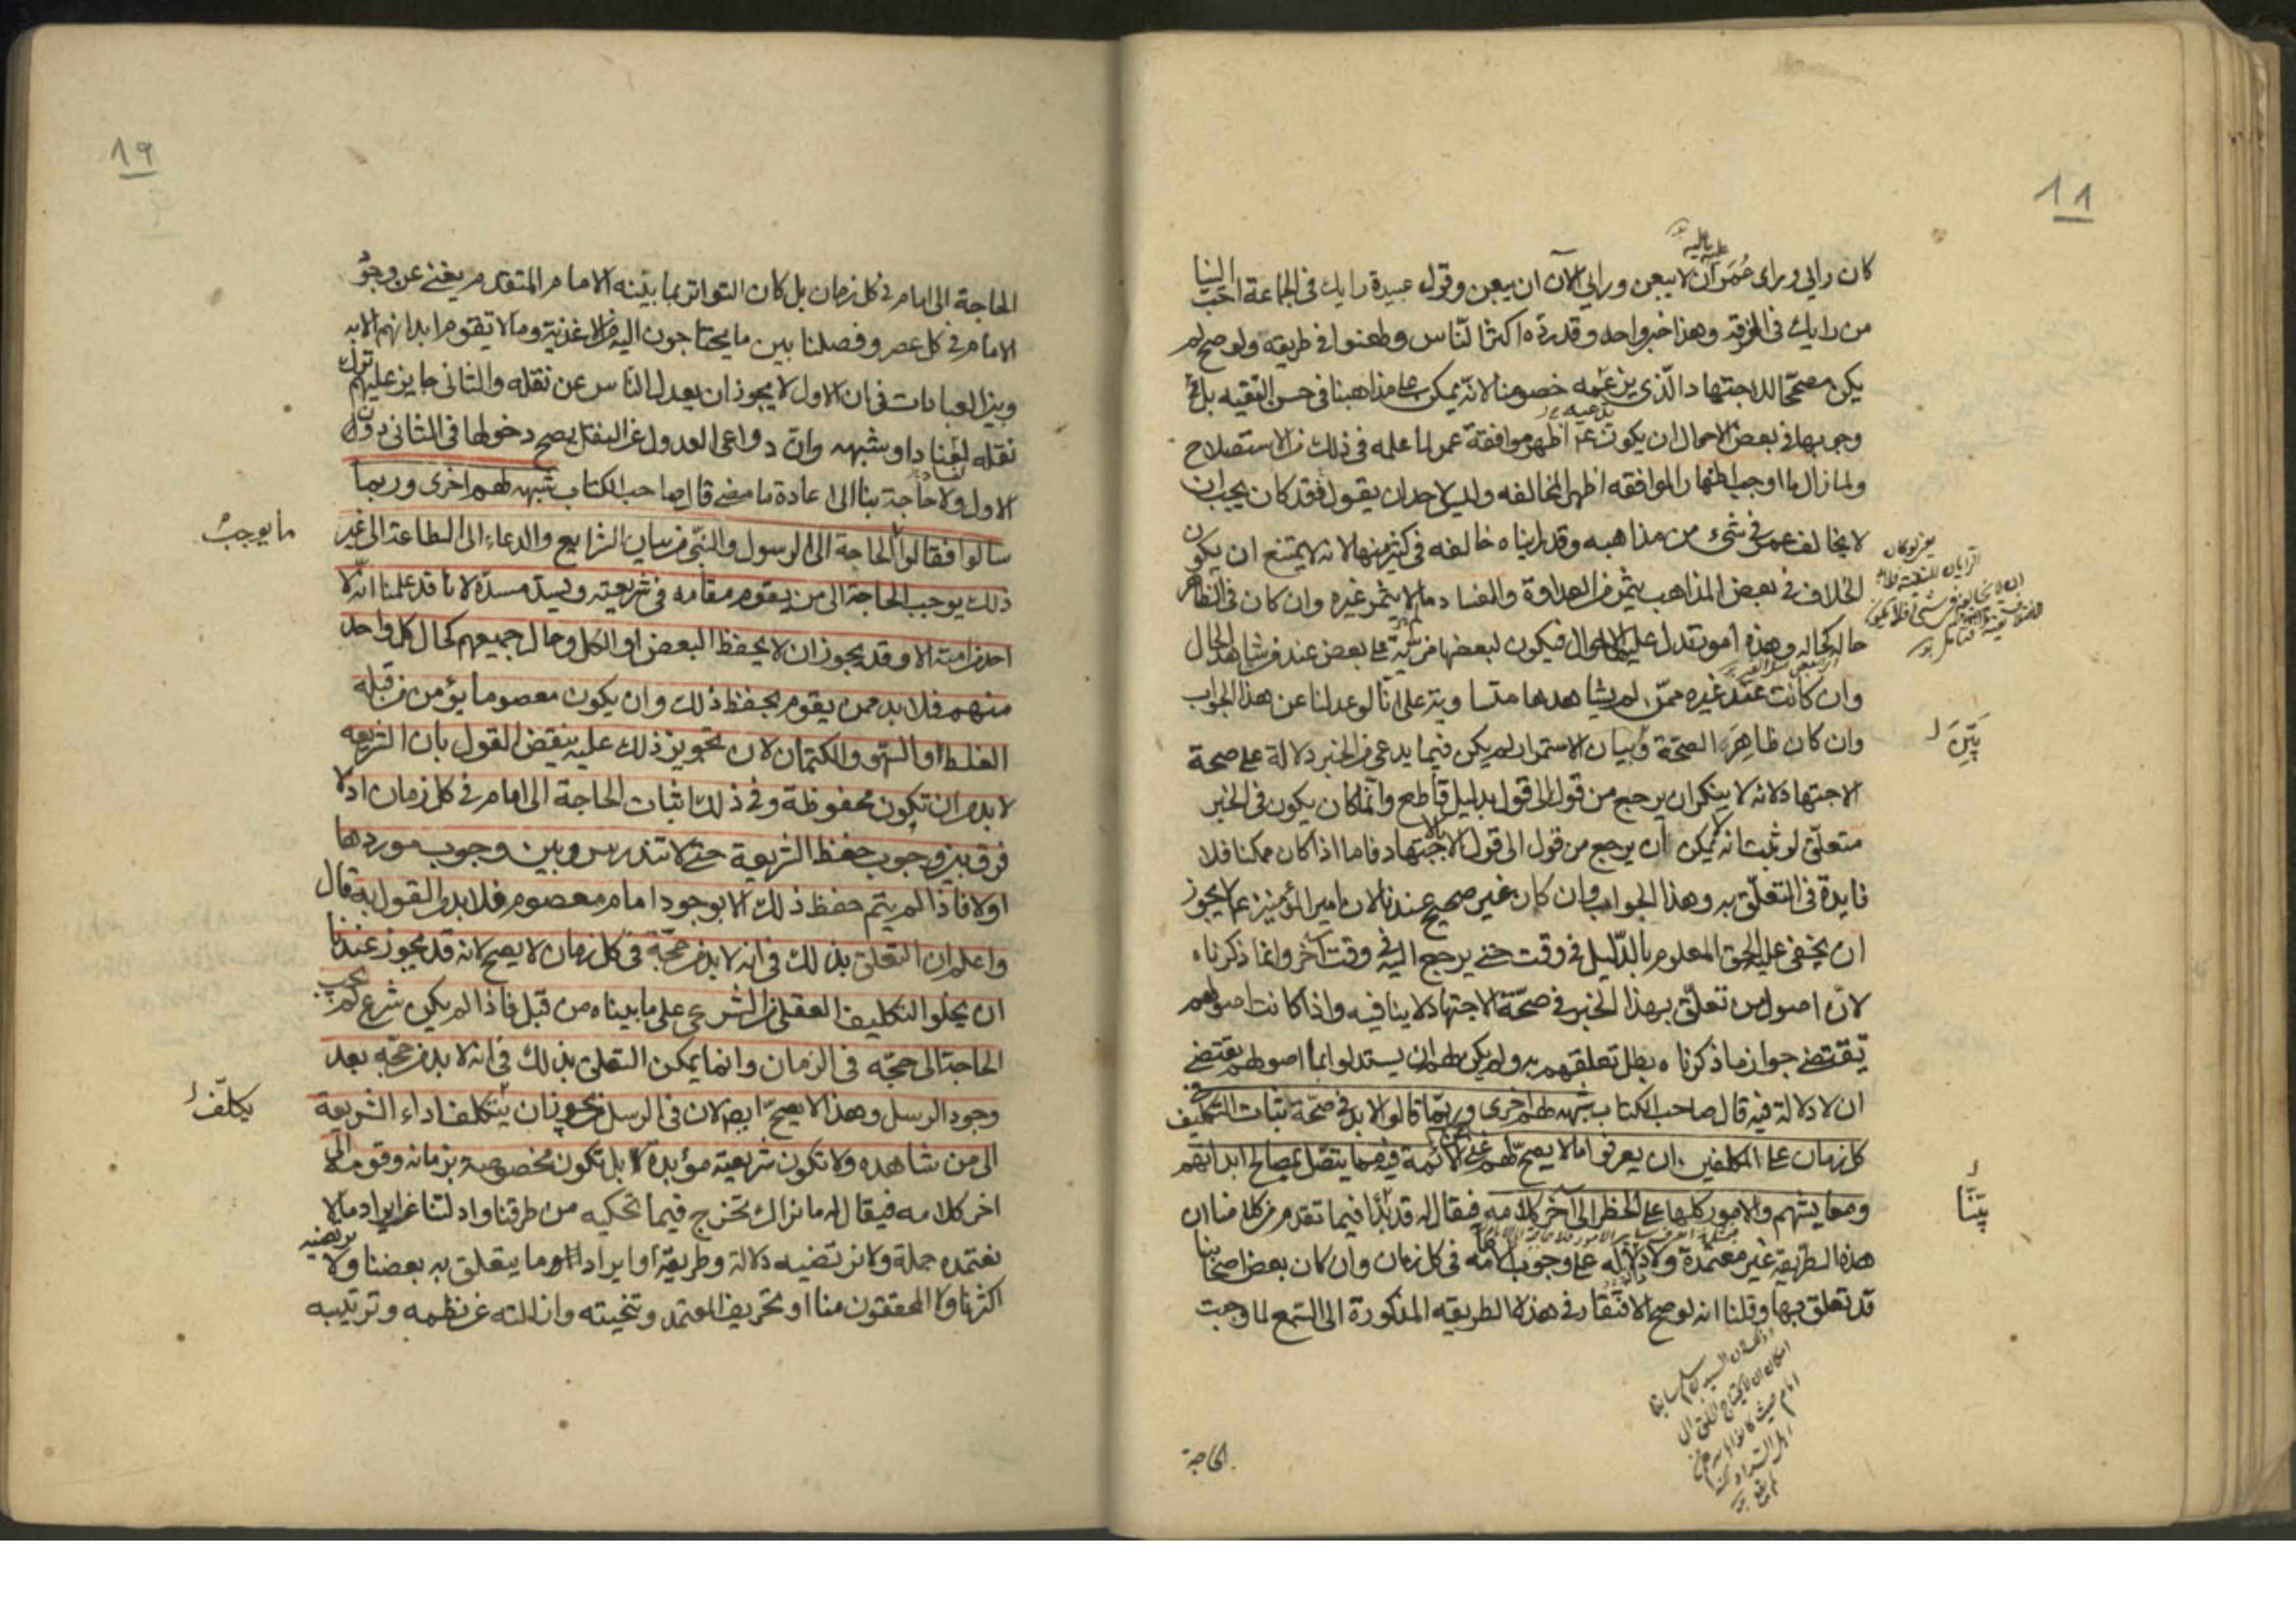 ١٨
كان رايي وراى عُمَر ان لا يبعن ورايي الآن ان يبعن وقول عبيدة رايك في الجماعة احب الينا
من رايك في الفرقة وهذا خبر واحد وقد رده اكثر الناس وطعنوا في طريقه ولو صح لم
يكن مصححا للاجتهاد الذي يزعمه خصومنا لانه يمكن على مذاهبنا في حسن التقيه بل
وجوبها في بعض الاحوال ان يكون ع اظهر موافقة عمر لما علمه في ذلك من الاستصلاح
ولما زال ما اوجب اظهار الموافقه اظهر المخالفه وليس لاحد ان يقول فقد كان يجب ان
لا يخالف عمر في شيء من مذاهبه وقد رايناه خالفه في كثير منها لانه لا يمتنع ان يكون
الخلاف في بعض المذاهب يثمر من العداوة والفساد ما لا يثمر غيره وان كان في الظاهر
حاله كحاله وهذه امور تدل عليها الاحوال فيكون لبعضها مزية على بعض عند من شاهد الحال
وان كانت عند غيره ممن لم يشاهدها متساوية على انا لو عدلنا عن هذا الجواب
وان كان ظاهِرَ الصحّة وبيان الاستمرار لم يكن فيما يدعى من الخبر دلالة على صحة
بَيّنَ
الاجتهاد لانه لا ينكر ان يرجع من قول الى قول بدليل قاطع وانّما كان يكون في الخبر
متعلّق لو ثبت انه لا يمكن ان يرجع من قول الى قول الا بالاجتهاد فاما اذا كان ممكنا فلا
فايدة في التعلّق به وهذا الجواب وان كان غير صحيح عندنا لان امير المؤمنين ع لا يجوز
ان يخفى عليه الحق المعلوم بالدّليل في وقت حتى يرجع اليه في وقت آخر وانما ذكرناه
لانّ اصول من تعلّق بهذا الخبر في صحّة الاجتهاد لا ينافيه واذا كانت اصولهم
تقتضى جواز ما ذكرناه بطل تعلقهم به ولم يكن لهم ان يستدلوا بما اصولهم يقتضى
ان لا دلالة فيه قال صاحب الكتاب شبهه لهم اخرى وربّما قالوا لا بد في صحّة اثبات التكليف في
كل زمان على المكلفين ان يعرفوا ما لا يصحّ لهم غنى الائمة فيه مما يتصّل بمصالح ابدانهم
ومعايشهم والامور كلها على الحظر الى آخر كلامه فيقال له قد بيّنا فيما تقدم من كلامنا ان
بيّنّا
هذه الطريقة غير معتمدة ولا دلاله على وجوب الامامه في كل زمان وان كان بعض اصحابنا
قد تعلق بها وقلنا انه لو صح الافتقار في هذه الطريقه المذكورة الى السّمع لما وجبت
الحاجة
١٩
الحاجة الى امام في كل زمان بل كان التواتر بما بيّنه الامام المتقدم يغنى عن وجود
الامام في كل عصر وفصلنا بين ما يحتاجون اليه من الاغذية وما لا تقوم ابدانهم الا به
وبين العبادات في ان الاول لا يجوز ان يعدل الناس عن نقله والثانى جايز عليهم ترك
نقله لعناد او شبهه وان دواعى العدول عن النقل يصح دخولها في الثانى دون
الاول ولا حاجة بنا الى اعادة ما مضى قال صاحب الكتاب شبهه لهم اخرى وربما
سالوا فقالوا الحاجة الى الرسول والنّبى من بيان الشرايع والدعاء الى الطاعة الى غير
ما يوجب
ذلك يوجب الحاجة الى من يقوم مقامه في شريعته ويسدّ مسدّه لانا قد علمنا انّه لا
احد من امته الا وقد يجوز ان لا يحفظ البعض او الكل وحال جميعهم كحال كل واحد
منهم فلا بد ممن يقوم بحفظ ذلك وان يكون معصوما يؤمن من قبله
الغلط او السّهو والكتمان لان تجويز ذلك عليه ينقض القول بان الشريعه
لا بد من ان تكون محفوظة وفي ذلك اثبات الحاجة الى امام في كل زمان اذ لا
فرق بين وجوب حفظ الشريعة حتى لا تندرس وبين وجوب موردها
اولا فاذا لم يتم حفظ ذلك الا بوجود امام معصوم فلا بد من القول به قال
واعلم ان التعلق بذلك في انه لا بد من حجّة في كل زمان لا يصح لانه قد يجوز عندنا
ان يخلو التكليف العقلى من الشرعى على ما بيناه من قبل فاذا لم يكن شرع لم يجب
الحاجة الى حجّه في الزمان وانما يمكن التعلق بذلك في انه لا بد من حجّه بعد
وجود الرسل وهذا لا يصحّ ايضا لان في الرسل من يجوز ان يتكلف اداء الشريعة
يكلّف
الى من شاهده ولا تكون شريعته مؤبدة بل تكون مخصوصة بزمانه وقومه الى
اخر كلامه فيقال له ما نراك تخرج فيما تحكيه من طرقنا وادلتنا عن ايراد ما لا
نعتمده جملة ولا نرتضيه دلالة وطريقة او ايراد ما يتعلق به بعضنا ولا يرتضيه
اكثرنا ولا المحققون منا او تحريف المعتمد وتنحيته وازالته عن نظمه وترتيبه